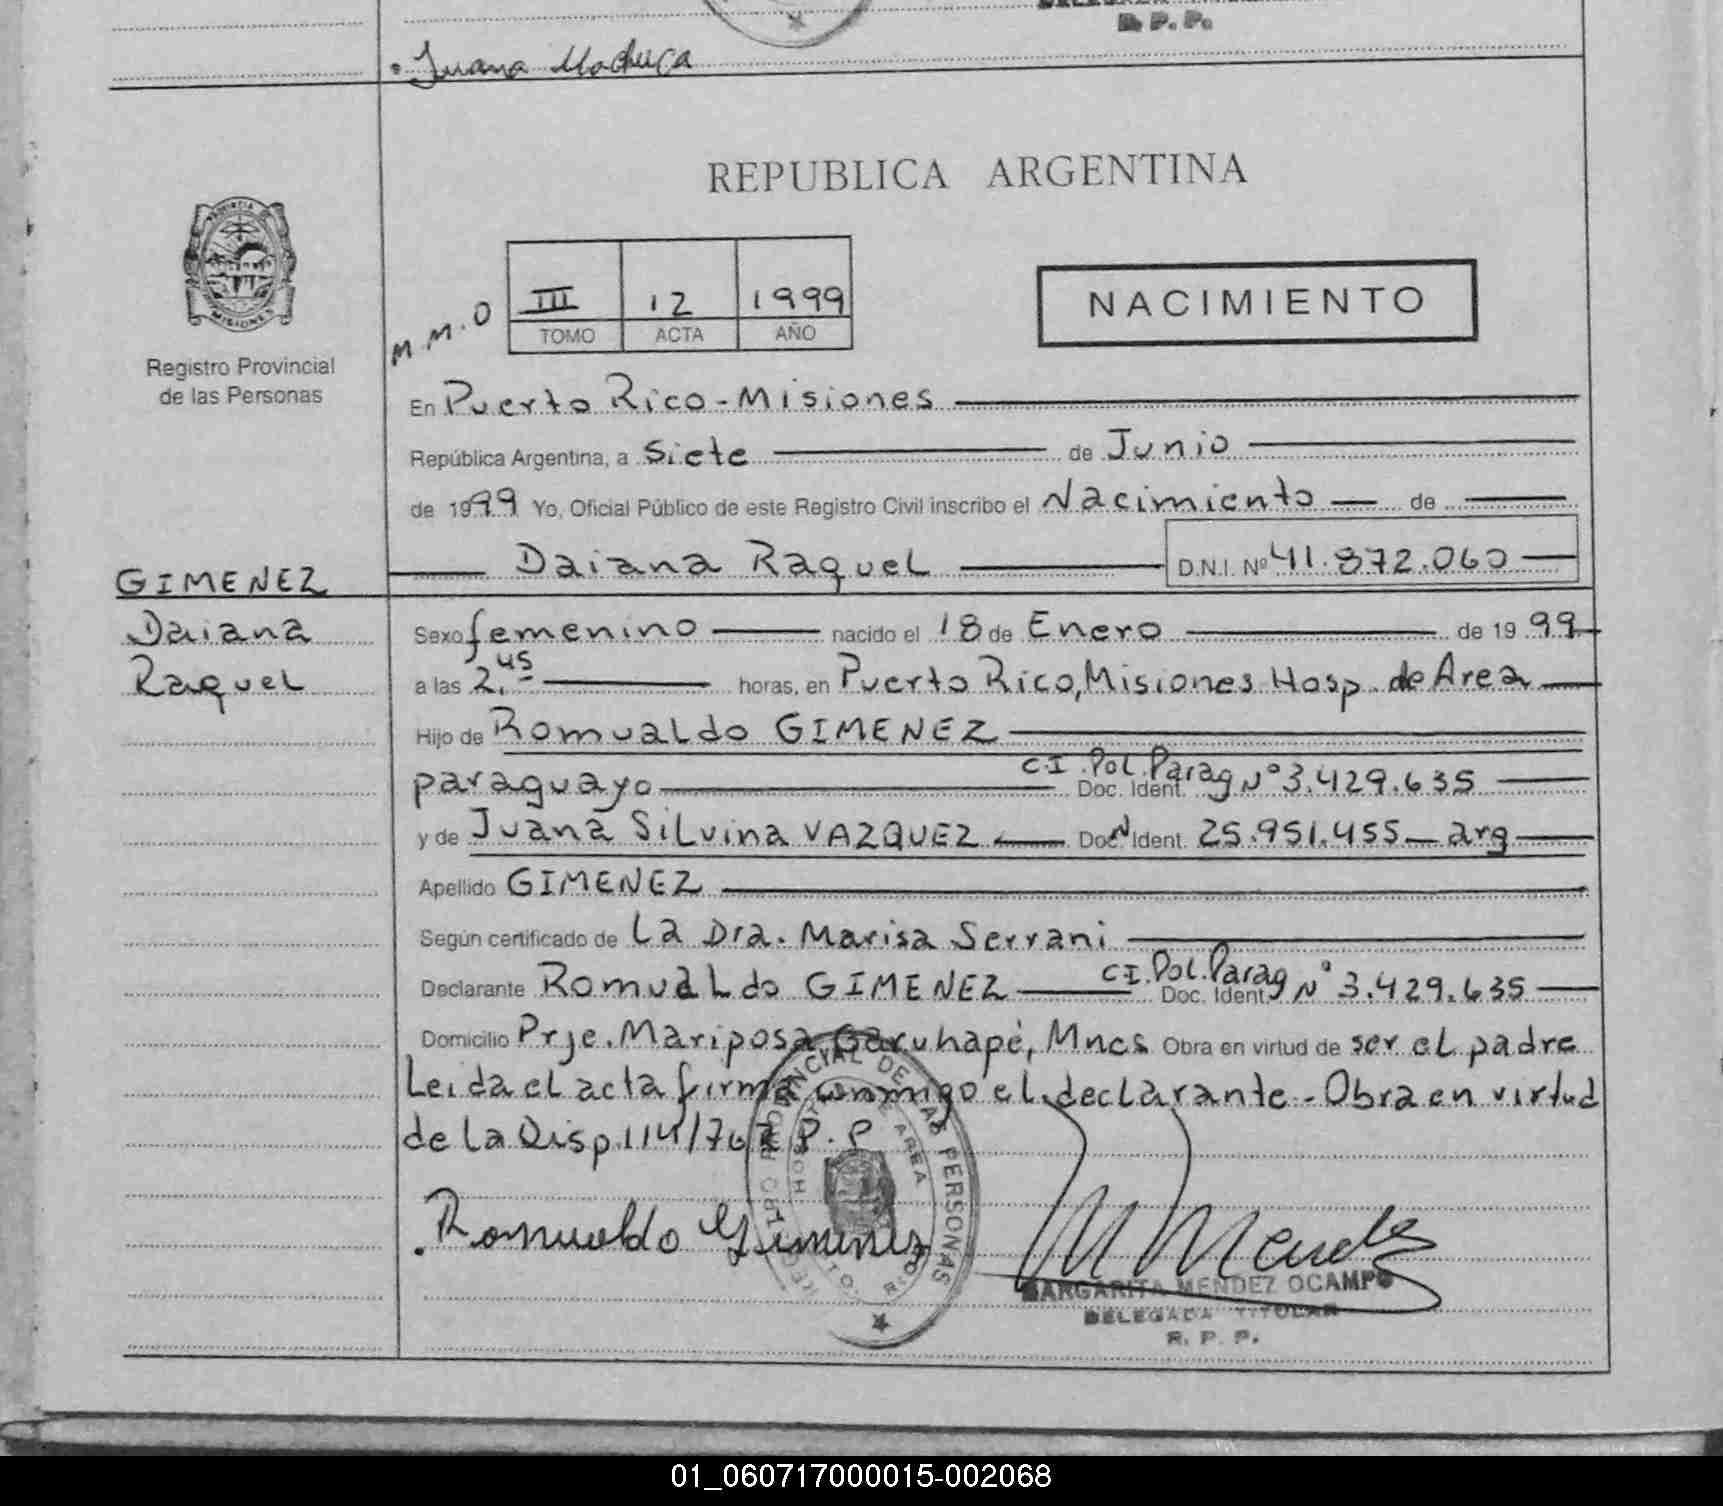 R. P. P.
Juana Machuca
REPUBLICA ARGENTINA
PROVINCIA DE
MISIONES
Registro Provincial
de las Personas
M.M.O
III 12 1999
TOMO ACTA AÑO
NACIMIENTO
En Puerto Rico - Misiones
República Argentina, a Siete de Junio
de 1999 Yo, Oficial Público de este Registro Civil inscribo el Nacimiento de
Daiana Raquel D.N.I. Nº 41.872.060
GIMENEZ
Daiana
Raquel
Sexo femenino nacido el 18 de Enero de 1999
a las 2,45 horas, en Puerto Rico, Misiones Hosp. de Area
Hijo de Romualdo GIMENEZ
paraguayo Doc. Ident. C.I. Pol. Parag Nº 3.429.635
y de Juana Silvina VAZQUEZ Doc. N Ident. 25.951.455 - arg
Apellido GIMENEZ
Según certificado de La Dra. Marisa Serrani
Declarante Romualdo GIMENEZ Doc. Ident. C.I. Pol. Parag Nº 3.429.635
Domicilio Prje. Mariposa Garuhapé, Mnes Obra en virtud de ser el padre
Leida el acta firma conmigo el declarante - Obra en virtud
de la Disp. 114/76 R.P.P
Romualdo Gimenez
REGISTRO PROVINCIAL DE LAS PERSONAS
HOSPITAL DE AREA
PTO. RICO
M Mendez
MARGARITA MENDEZ OCAMPO
DELEGADA TITULAR
R. P. P.
01_060717000015-002068